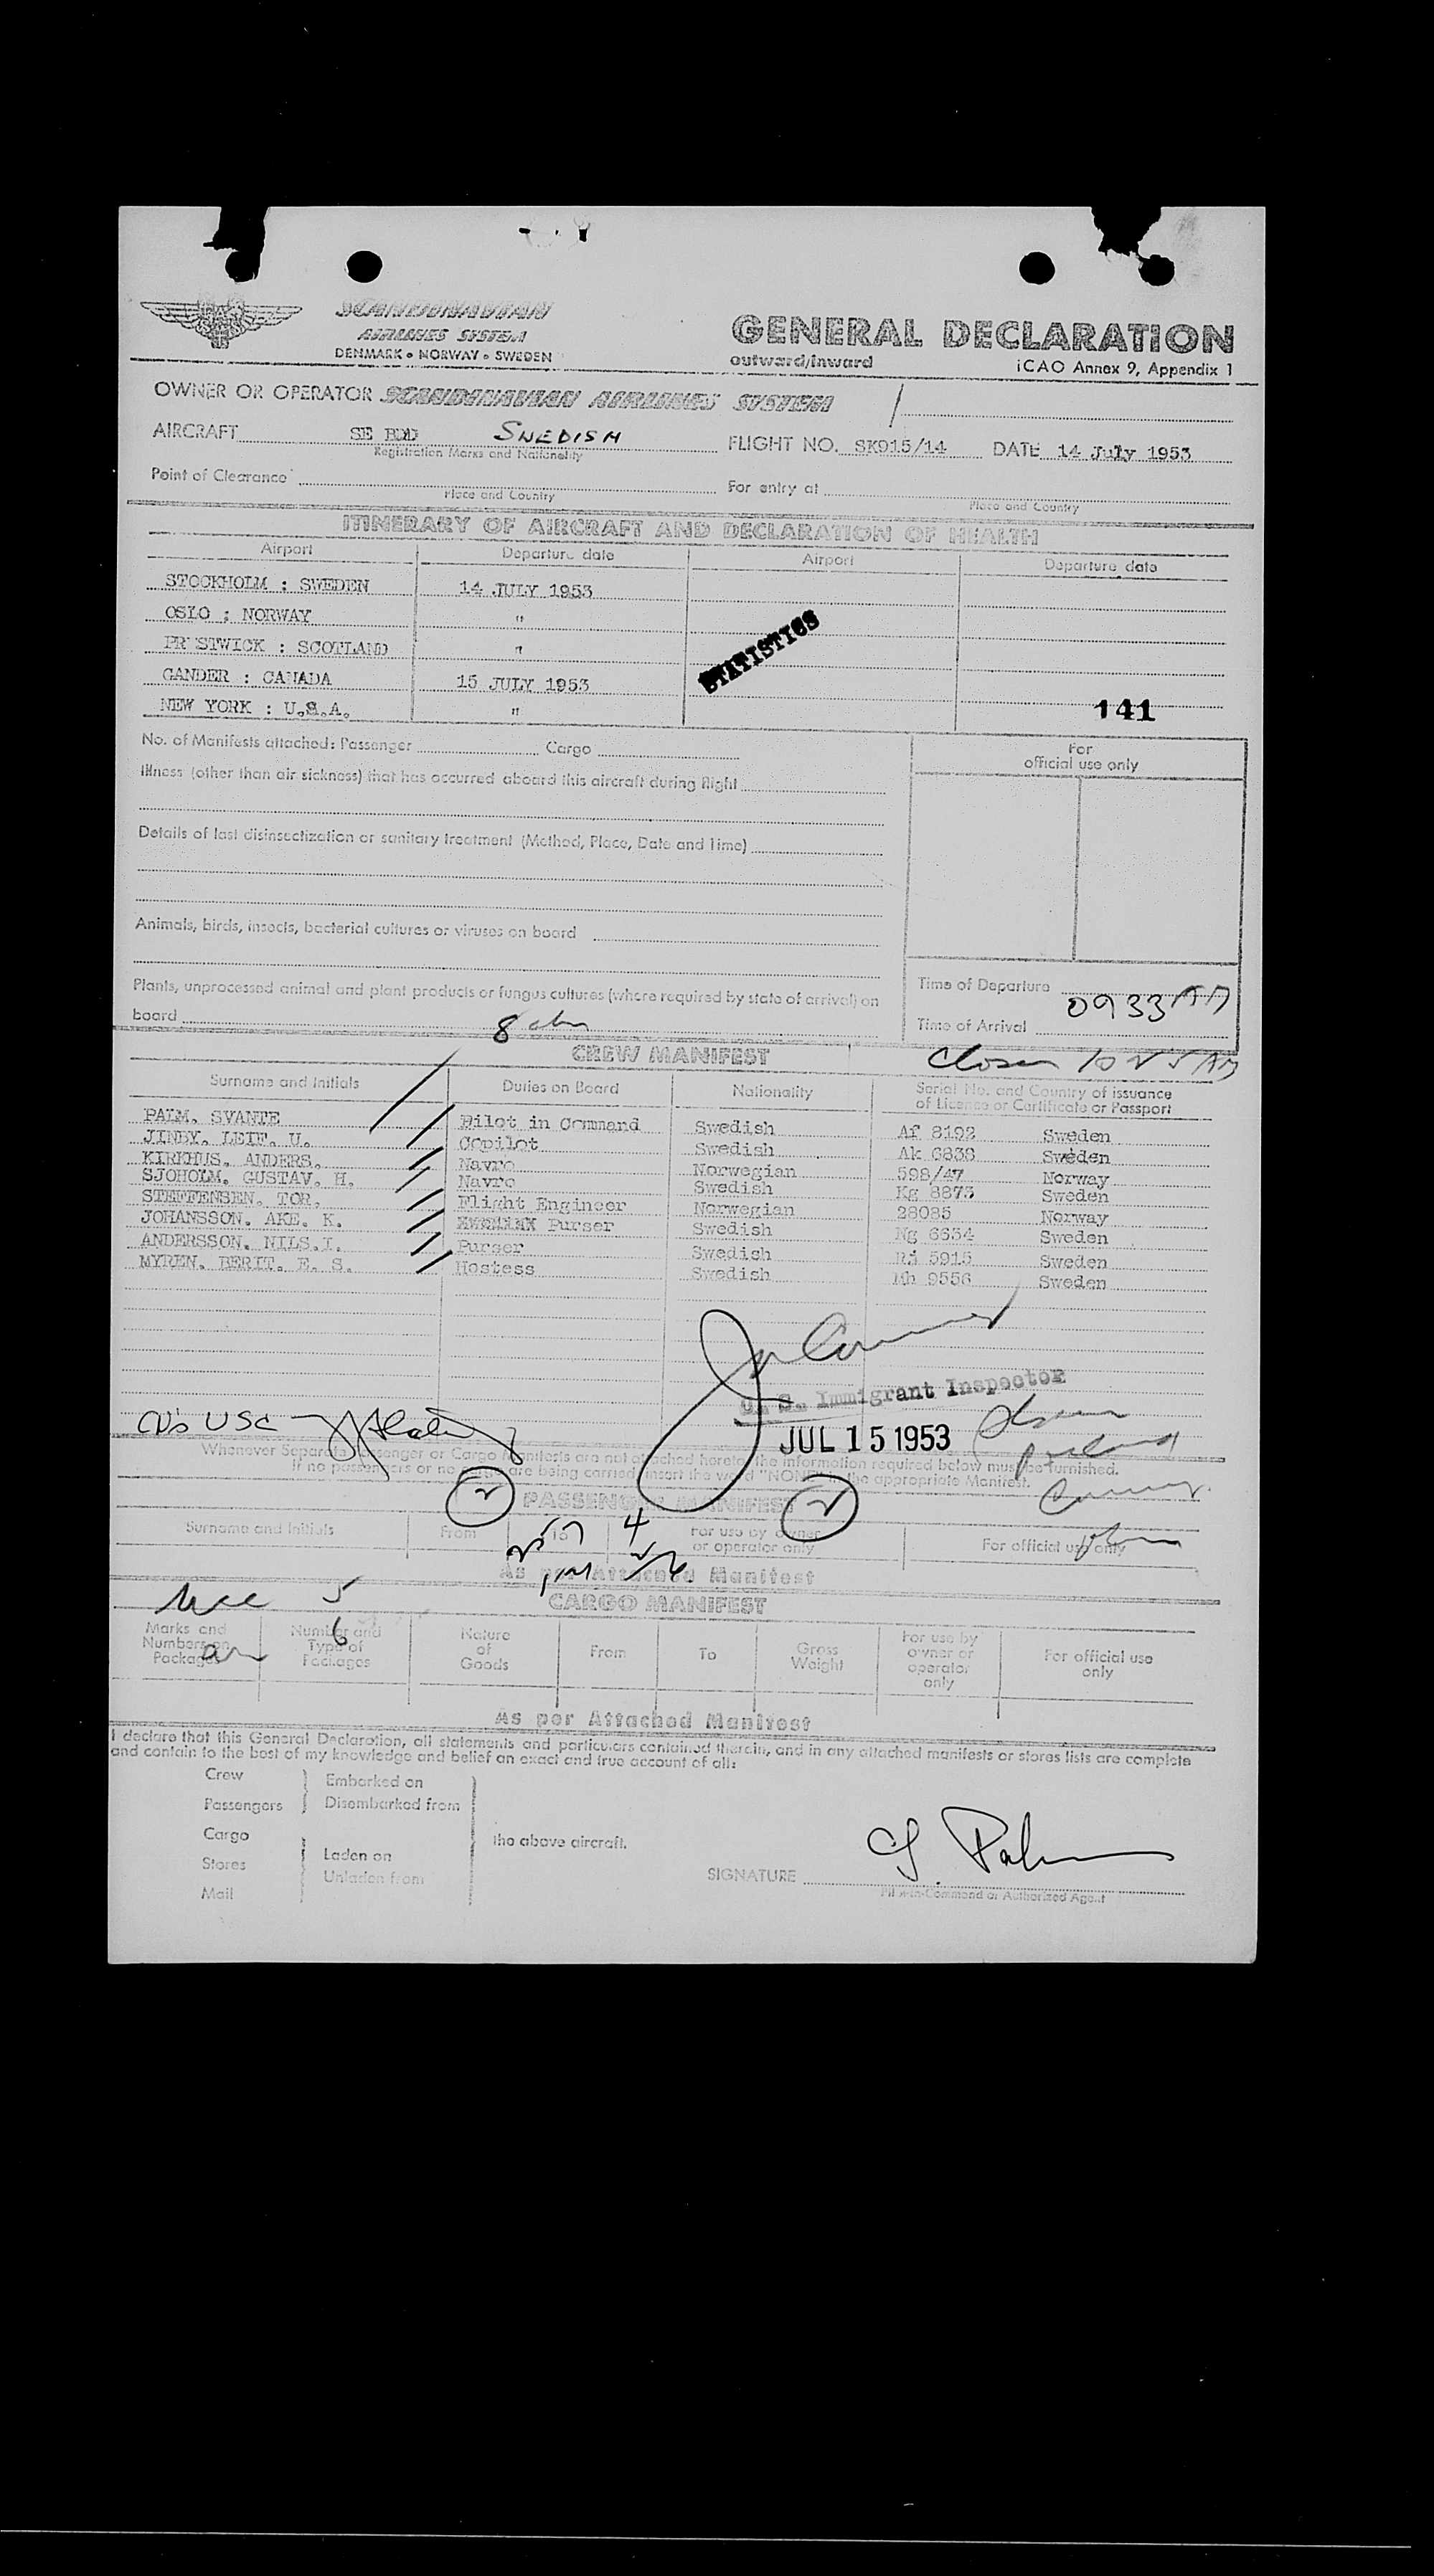 SCANDINAVIAN
AIRLINES SYSTEM
DENMARK • NORWAY • SWEDEN
GENERAL DECLARATION
outward/inward
ICAO Annex 9, Appendix 1
OWNER OR OPERATOR SCANDINAVIAN AIRLINES SYSTEM
AIRCRAFT SE BDD SWEDISH FLIGHT NO. SK915/14 DATE 14 July 1953
Registration Marks and Nationality
Point of Clearance For entry at
Place and Country Place and Country
ITINERARY OF AIRCRAFT AND DECLARATION OF HEALTH
Airport Departure date Airport Departure date
STOCKHOLM : SWEDEN 14 JULY 1953
OSLO : NORWAY "
PR STWICK : SCOTLAND "
STATISTICS
GANDER : CANADA 15 JULY 1953
NEW YORK : U.S.A. "
141
No. of Manifests attached: Passenger Cargo
For
official use only
Illness (other than air sickness) that has occurred aboard this aircraft during flight
Details of last disinsectization or sanitary treatment (Method, Place, Date and Time)
Animals, birds, insects, bacterial cultures or viruses on board
Plants, unprocessed animal and plant products or fungus cultures (where required by state of arrival) on
board 8
Time of Departure
0933
Time of Arrival
CREW MANIFEST
Surname and Initials Duties on Board Nationality Serial No. and Country of issuance
of Licence or Certificate or Passport
PALM, SVANTE Pilot in Command Swedish Af 8192 Sweden
JINBY, LEIF. U. Copilot Swedish Ak 6836 Sweden
KIRKHUS, ANDERS. Navro Norwegian 598/47 Norway
SJOHOLM, GUSTAV. H. Navro Swedish Kg 8873 Sweden
STEFFENSEN, TOR. Flight Engineer Norwegian 28085 Norway
JOHANSSON, AKE. K. Purser Swedish Ng 6634 Sweden
ANDERSSON, NILS.I. Purser Swedish 5915 Sweden
MYREN, BERIT. E. S. Hostess Swedish Mh 9556 Sweden
U. S. Immigrant Inspector
JUL 15 1953
USC
Whenever Separate Passenger or Cargo Manifests are not attached hereto, the information required below must be furnished.
If no passengers or no cargo are being carried insert the word "NONE" in the appropriate Manifest.
PASSENGER MANIFEST
Surname and Initials From To For use by owner
or operator only For official use only
4
As per Attached Manifest
5
CARGO MANIFEST
6
Marks and
Numbers on
Packages Number and
Type of
Packages Nature
of
Goods From To Gross
Weight For use by
owner or
operator
only For official use
only
As per Attached Manifest
I declare that this General Declaration, all statements and particulars contained therein, and in any attached manifests or stores lists are complete
and contain to the best of my knowledge and belief an exact and true account of all:
Crew Embarked on
Passengers Disembarked from
Cargo
the above aircraft.
Stores Laden on
Unladen from
Mail
SIGNATURE Palm
Pilot-in-Command or Authorized Agent